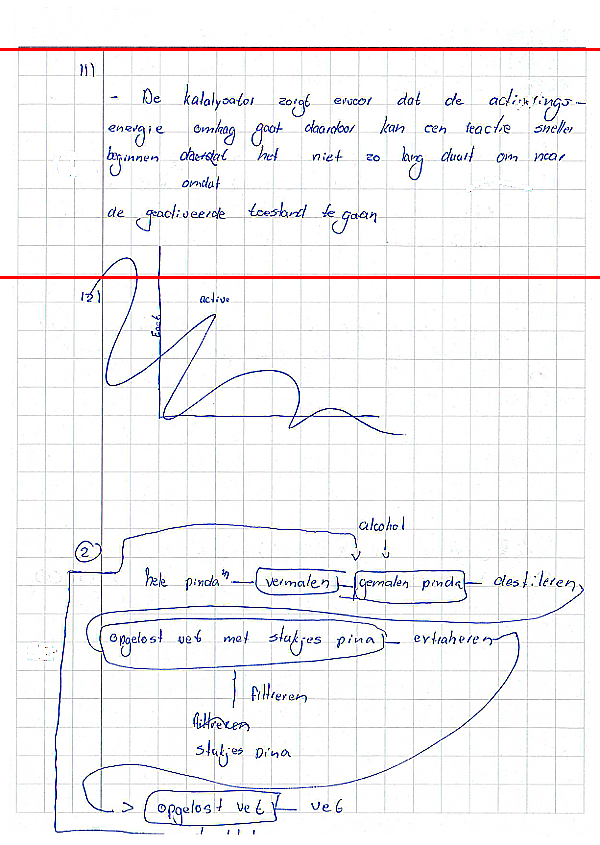 11)
- De katalysator zorgt ervoor dat de activerings-
energie omlaag gaat daardoor kan een reactie sneller
beginnen het niet zo lang duurt om naar
omdat
de geactiveerde toestand te gaan
12)
active
alcohol
2
hele pinda's vermalen gemalen pinda destileren
opgelost vet met stukjes pina extraheren
filtreren
filtreren
stukjes pina
> opgelost vet vet